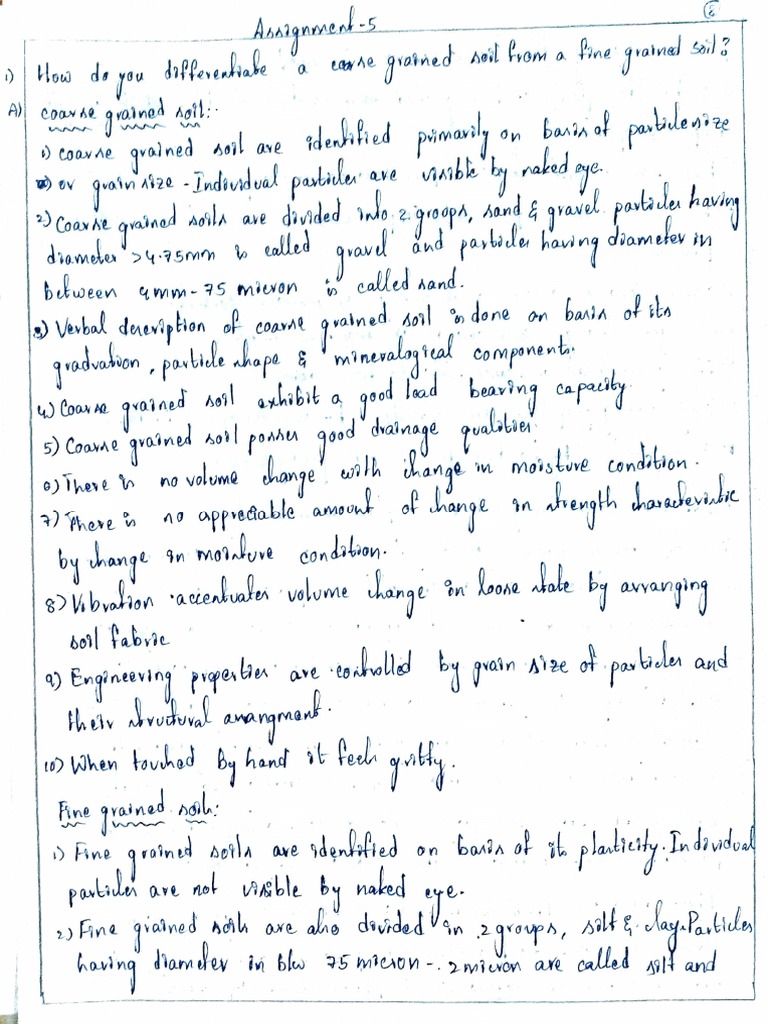 Assignment-5
1) How do you differentiate a coarse grained soil from a fine grained soil?
A) coarse grained soil:-
1) coarse grained soil are identified primarily on basis of particle size
or grain size - Individual particles are visible by naked eye.
2) Coarse grained soils are divided into 2 groops, sand & gravel particles having
diameter >4.75mm is called gravel and particles having diameter in
between 4mm-75 micron is called sand.
3) Verbal description of coarse grained soil is done on basis of its
gradvation, particle shape & mineralogical components.
4) Coarse grained soil exhibit a good load bearing capacity
5) Coarse grained soil posses good drainage qualities
6) There is no volume change with change in moisture condition.
7) There is no appreciable amount of change in strength characteristic
by change in moisture condition.
8) Vibration accentuates volume change in loose state by arranging
soil fabric
9) Engineering properties are controlled by grain size of particles and
their structural arrangment.
10) When touched By hand it feels gritty.
Fine grained soils:
1) Fine grained soils are identified on basis of its plasticity. Individual
particles are not visible by naked eye.
2) Fine grained soils are also divided in 2 groups, silt & clay. Particles
having diameter in b/w 75 micron - 2 micron are called silt and